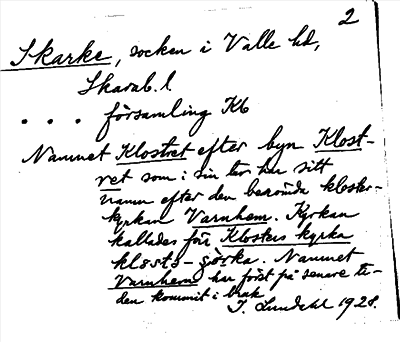 2
Skarke, socken i Valle hd,
Skarab. l.
. . . församling Kb
Namnet Klostret efter byn Klost-
ret som i sin tur har sitt
namn efter den berömda kloster-
kyrkan Varnhem. Kyrkan
kallades förr Klosters kyrka
klosts-görka. Namnet
Varnhem har först på senare ti-
den kommit i bruk
I. Lundahl 1928.